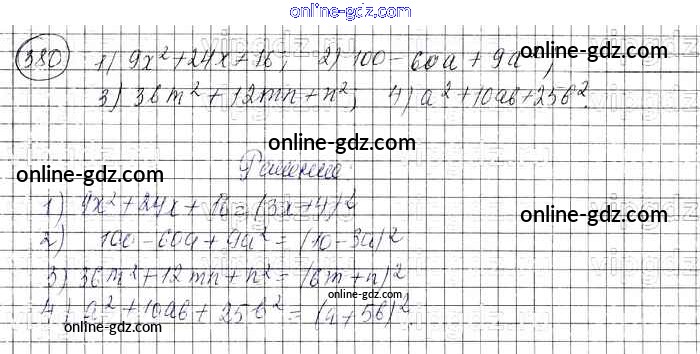 online-gdz.com
380 1) 9x² + 24x + 16; 2) 100 - 60a + 9a²;
3) 36m² + 12mn + n²; 4) a² + 10ab + 25b².
online-gdz.com
online-gdz.com
Решение:
1) 9x² + 24x + 16 = (3x+4)²
online-gdz.com
2) 100 - 60a + 9a² = (10 - 3a)²
3) 36m² + 12mn + n² = (6m + n)²
online-gdz.com
4) a² + 10ab + 25b² = (a + 5b)².
online-gdz.com